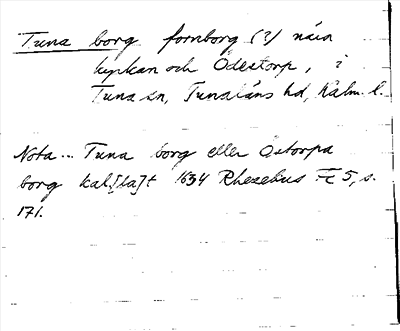 Tuna borg fornborg (?) nära
kyrkan och Ödestorp, i
Tuna sn, Tunaläns hd, Kalm. l.
Nota... Tuna borg eller Östorpa
borg kal[la]t 1634 Rhezelius Fc 5, s.
171.